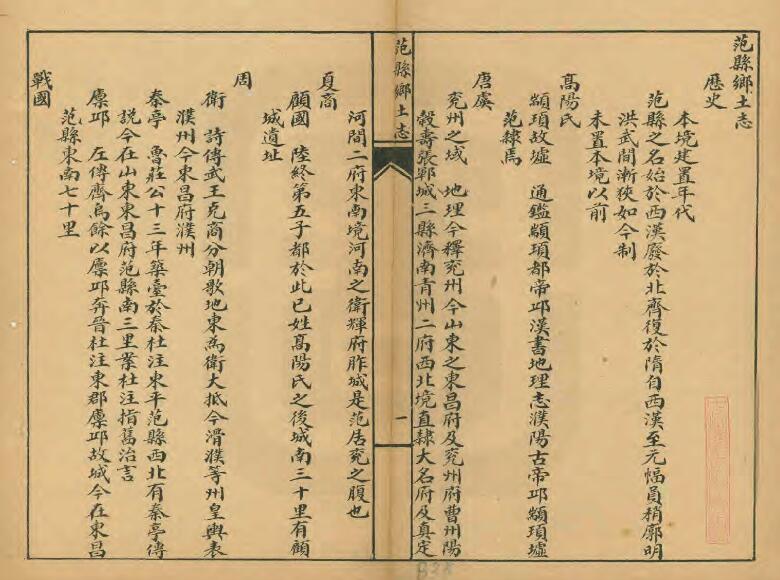 范縣鄉土志
歷史
本境建置年代
范縣之名始於西漢廢於北齊復於隋自西漢至元幅員稍廓明
洪武間漸狹如今制
未置本境以前
高陽氏
顓頊故墟 通鑑顓頊都帝邱漢書地理志濮陽古帝邱顓頊墟
范隸焉
唐虞
兗州之域 地理今釋兗州今山東之東昌府及兗州府曹州陽
穀壽張鄆城三縣濟南青州二府西北境直隸大名府及真定
范縣鄉土志
一
河間二府東南境河南之衛輝府胙城是范居兗之腹也
夏商
顧國 陸終第五子都於此已姓高陽氏之後城南三十里有顧
城遺址
周
衛 詩傳武王克商分朝歌地東為衛大抵今滑濮等州皇輿表
濮州今東昌府濮州
秦亭 魯莊公十三年築臺於秦杜注東平范縣西北有秦亭傳
說今在山東東昌府范縣南三里案杜注指舊治言
廩邱 左傳齊烏餘以廩邱奔晉杜注東郡廩邱故城今在東昌
范縣東南七十里
戰國